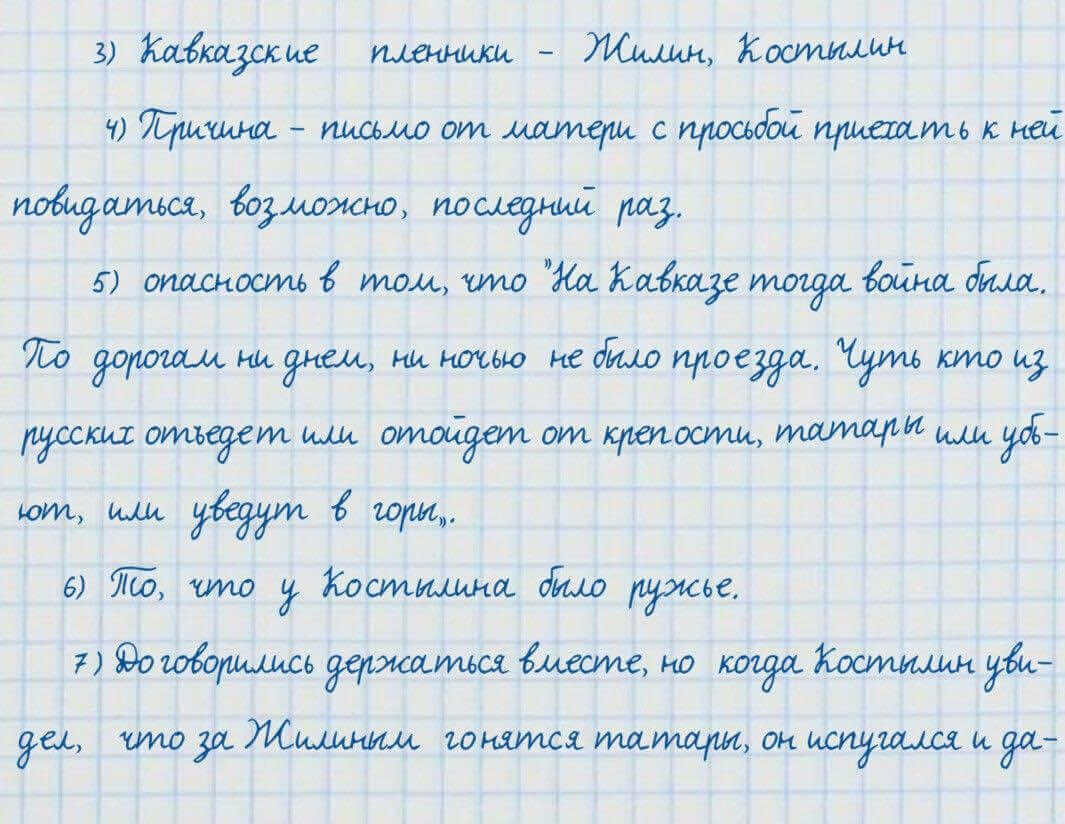 3) Кавказские пленники - Жилин, Костылин
4) Причина - письмо от матери с просьбой приехать к ней
повидаться, возможно, последний раз.
5) опасность в том, что "На Кавказе тогда война была.
По дорогам ни днем, ни ночью не было проезда. Чуть кто из
русских отъедет или отойдет от крепости, татары или убь-
ют, или уведут в горы„.
6) То, что у Костылина было ружье.
7) Договорились держаться вместе, но когда Костылин уви-
дел, что за Жилиным гонятся татары, он испугался и да-